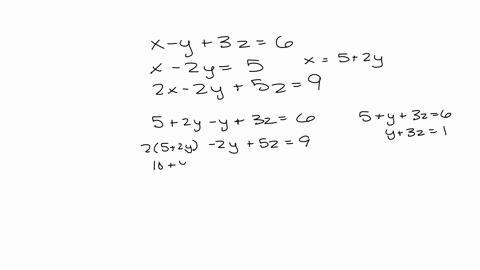 x - y + 3z = 6
x - 2y = 5
x = 5 + 2y
2x - 2y + 5z = 9
5 + 2y - y + 3z = 6
5 + y + 3z = 6
y + 3z = 1
2(5 + 2y) - 2y + 5z = 9
10 +